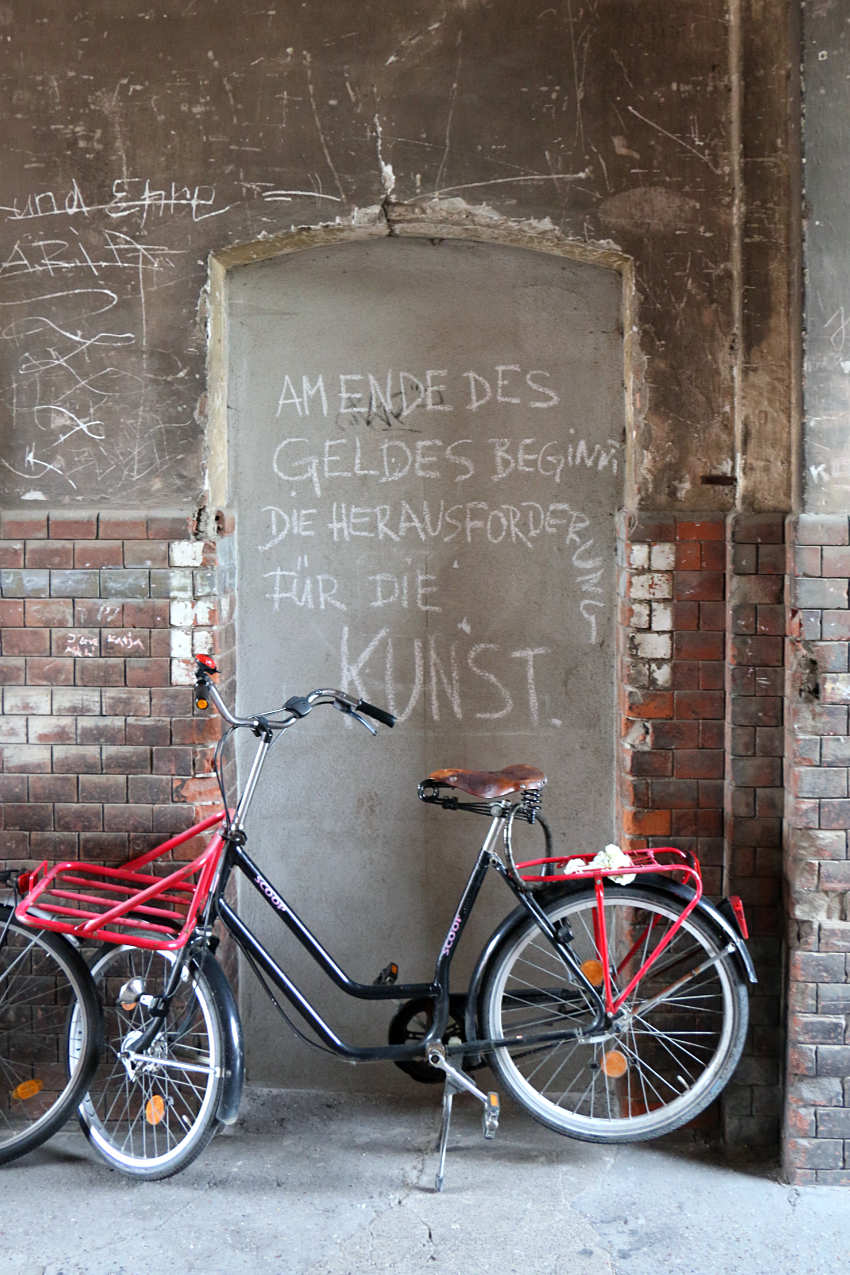 und
AM ENDE DES
GELDES BEGINNT
DIE HERAUSFORDERUNG
FÜR DIE
KUNST.
Katja
SCOOP
SCOOP